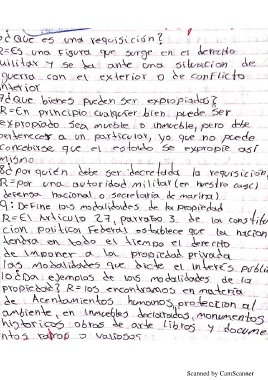 6¿Qué es una requisición?
R=Es una figura que surge en el derecho
militar y se da ante una situacion de
guerra con el exterior o de conflicto
interior
7¿Que bienes pueden ser expropiados?
R=En principio cualquier bien puede ser
expropiado sea mueble o inmueble, pero debe
pertenecer a un particular, ya que no puede
concebirse que el estado se expropie así
mismo
8¿por quién debe ser decretada la requisición
R=por una autoridad militar (en nuestro caso)
defensa nacional o secretaría de marina).
9: Define las modalidades de la propiedad
R=El Artículo 27, parrafo 3 de la constitu
cion politica Federal establece que la nacion
tendra en todo el tiempo el derecho
de imponer a la propiedad privada
las modalidades que dicte el interés publi
10¿Da ejemplos de las modalidades de la
propiedad? R= los encontramos en materia
de Acentamientos humanos, protección al
ambiente, en inmuebles declarados, monumentos
historicos obras de arte libros y docume
ntos raros o valiosos
Scanned by CamScanner